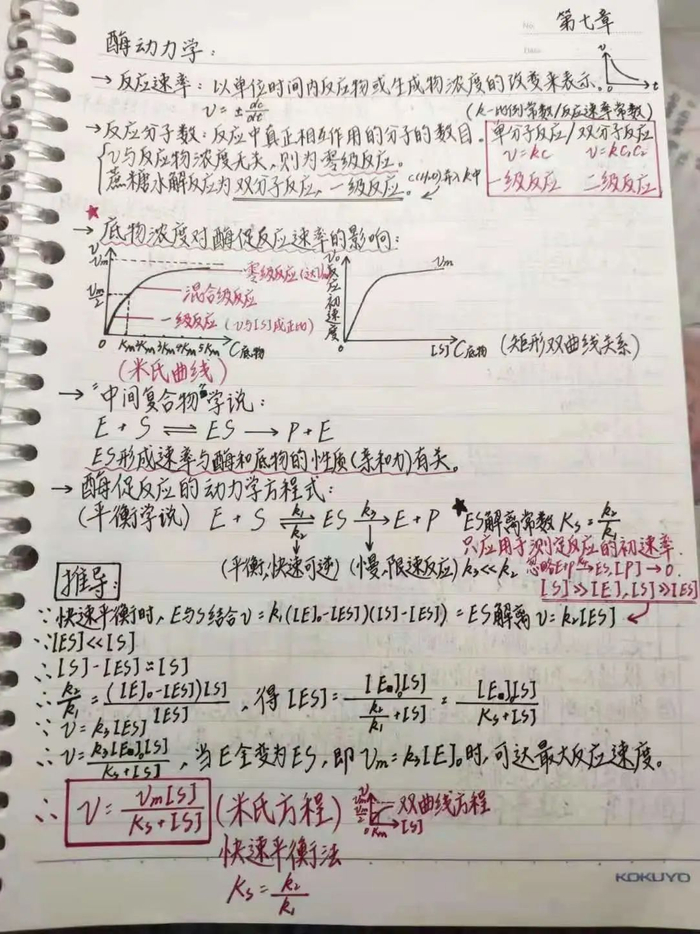 No.
第七章
Date
酶动力学：
→ 反应速率：以单位时间内反应物或生成物浓度的改变来表示。
v = ± dc/dt
v
t
0
(k-比例常数/反应速率常数)
→ 反应分子数：反应中真正相互作用的分子的数目。
单分子反应/双分子反应
v=kC v=kC₁C₂
一级反应 二级反应
{v与反应物浓度无关，则为零级反应。
蔗糖水解反应为双分子反应，一级反应。
C(H₂O)并入k中
★
→ 底物浓度对酶促反应速率的影响：
v
Vm
Vm/2
零级反应
混合级反应
一级反应 (v与[S]成正比)
0 Km 2Km 3Km 4Km 5Km C底物
(米氏曲线)
v₀
反应初速度
Vm
0 [S] C底物 (矩形双曲线关系)
→ "中间复合物"学说：
E + S ⇌ ES → P + E
ES形成速率与酶和底物的性质(亲和力)有关。
→ 酶促反应的动力学方程式：
(平衡学说) E + S ⇌ ES → E + P
k₁ k₂ k₃
★ ES解离常数 Ks = k₂/k₁
只应用于测定反应的初速率.
(平衡,快速可逆) (慢,限速反应) k₃<<k₂
忽略E+P→ES,[P]→0.
[S]>>[E],[S]>>[ES]
推导:
∵ 快速平衡时，E与S结合 v=k₁([E]₀-[ES])([S]-[ES]) = ES解离 v=k₂[ES]
∵ [ES]<<[S]
∴ [S]-[ES]≈[S]
∴ k₂/k₁ = ([E]₀-[ES])[S]/[ES] ，得 [ES] = [E]₀[S]/(k₂/k₁+[S]) = [E]₀[S]/(Ks+[S])
∵ v=k₃[ES]
∴ v = k₃[E]₀[S]/(Ks+[S]) ，当E全变为ES，即 Vm=k₃[E]₀时,可达最大反应速度。
∴ v = Vm[S]/(Ks+[S]) (米氏方程)
v
Vm
Vm/2
Km [S]
双曲线方程
快速平衡法
Ks = k₂/k₁
KOKUYO